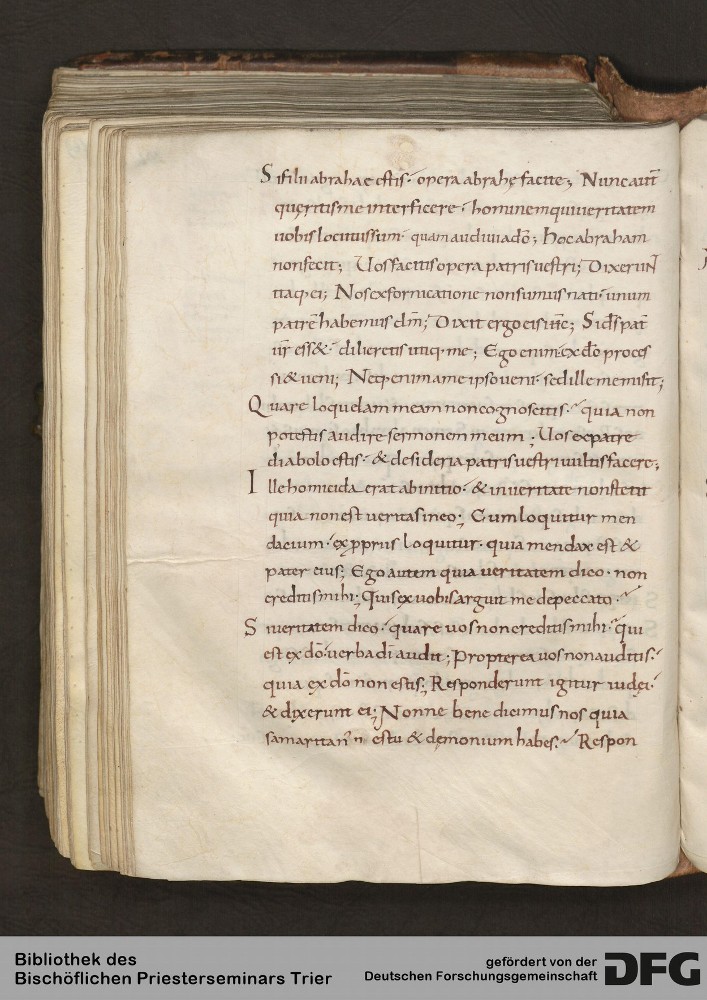 Si filii abrahae estis· opera abrahę facite; Nunc aut̄
quęritis me interficere· hominem qui ueritatem
uobis locutus sum· quam audiui a dō; Hoc abraham
non fecit; Uos facitis opera patris uestri; Dixerunt
itaq; ei; Nos ex fornicatione non sumus nati· unum
patrē habemus dm̄; Dixit ergo eis ihc̄; Si ds̄ pat̄
ur̄ ess&· diligeretis utiq; me; Ego enim· ex dō proces
si & ueni; Neq; enim a me ipso ueni· sed ille me misit;
Quare loquelam meam non cognoscitis· quia non
potestis audire sermonem meum; Uos ex patre
diabolo estis· & desideria patris uestri uultis facere;
Ille homicida erat ab initio· & in ueritate non stetit
quia non est ueritas in eo; Cum loquitur men
dacium· ex propriis loquitur· quia mendax est &
pater eius; Ego autem quia ueritatem dico· non
creditis mihi; Quis ex uobis arguit me de peccato·
Si ueritatem dico· quare uos non creditis mihi· qui
est ex dō· uerba dī audit; Propterea uos non auditis·
quia ex dō non estis; Responderunt igitur iudęi·
& dixerunt ei; Nonne bene dicimus nos quia
samaritan' es tu & dęmonium habes· Respon
Bibliothek des
Bischöflichen Priesterseminars Trier
gefördert von der
Deutschen Forschungsgemeinschaft
DFG